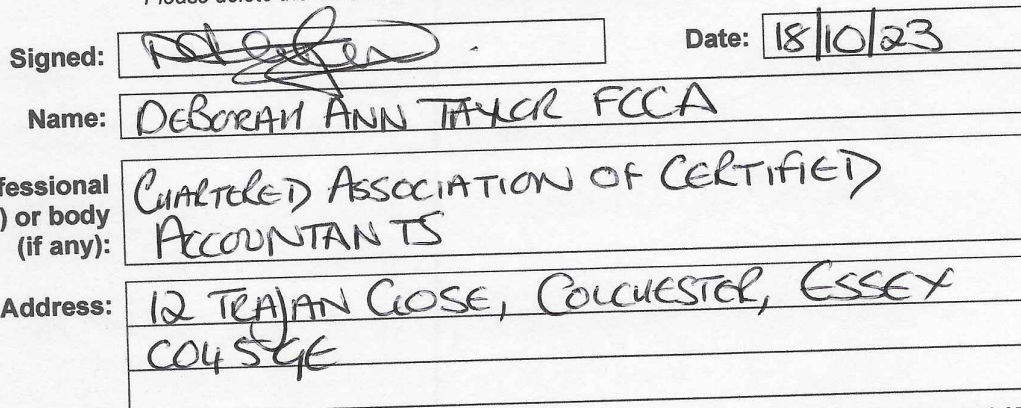 Signed:
Date: 18/10/23
Name: DEBORAH ANN TAYLOR FCCA
fessional
) or body
(if any):
CHARTERED ASSOCIATION OF CERTIFIED
ACCOUNTANTS
Address: 12 TRAJAN CLOSE, COLCHESTER, ESSEX
CO4 5GE